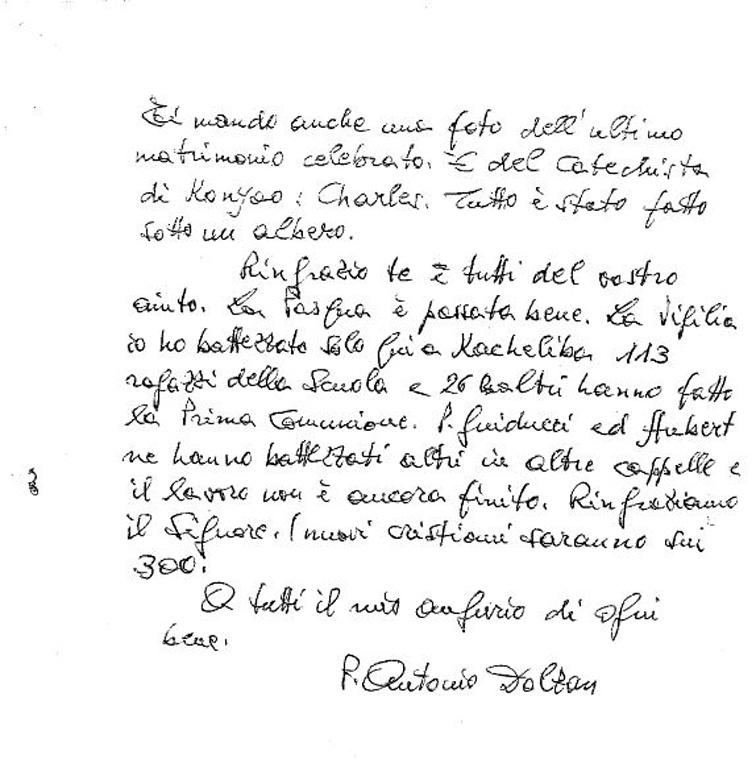 Ti mando anche una foto dell'ultimo
matrimonio celebrato. È del Catechista
di Konyao: Charles. Tutto è stato fatto
sotto un albero.
Ringrazio te e tutti del vostro
aiuto. La Pasqua è passata bene. La Vigilia
io ho battezzato solo qui a Kacheliba 113
ragazzi della Scuola e 26 altri hanno fatto
la Prima Comunione. P. Guiducci ed Hubert
ne hanno battezzati altri in altre cappelle e
il lavoro non è ancora finito. Ringraziamo
il Signore. I nuovi cristiani saranno sui
300.
A tutti il mio augurio di ogni
bene.
P. Antonio Dolzan